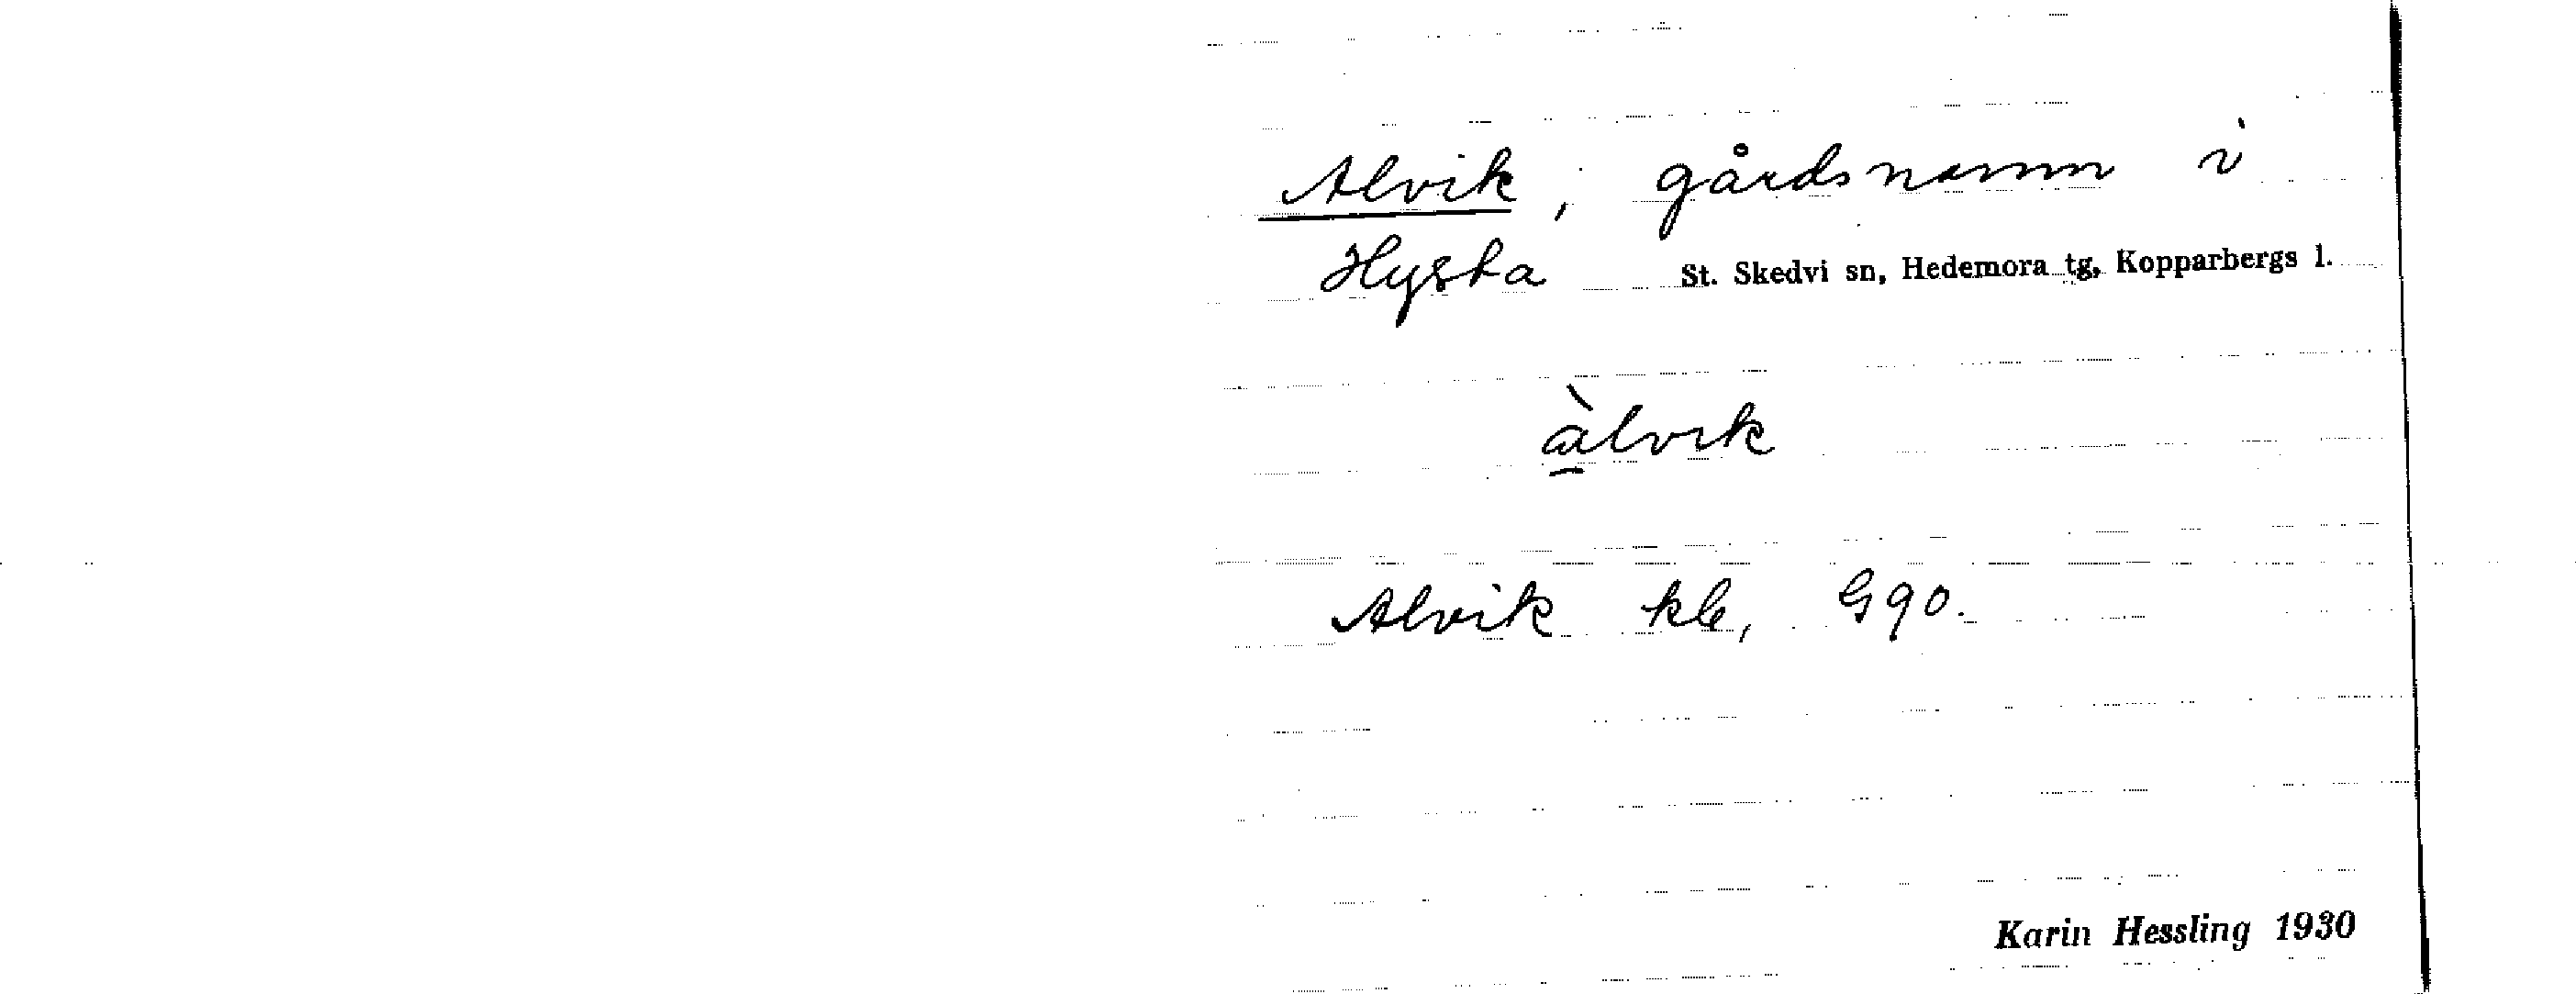 Alvik, gårdsnamn i
Hysta St. Skedvi sn, Hedemora tg, Kopparbergs l.
à̱lvik
Alvik kb, G90.
Karin Hessling 1930